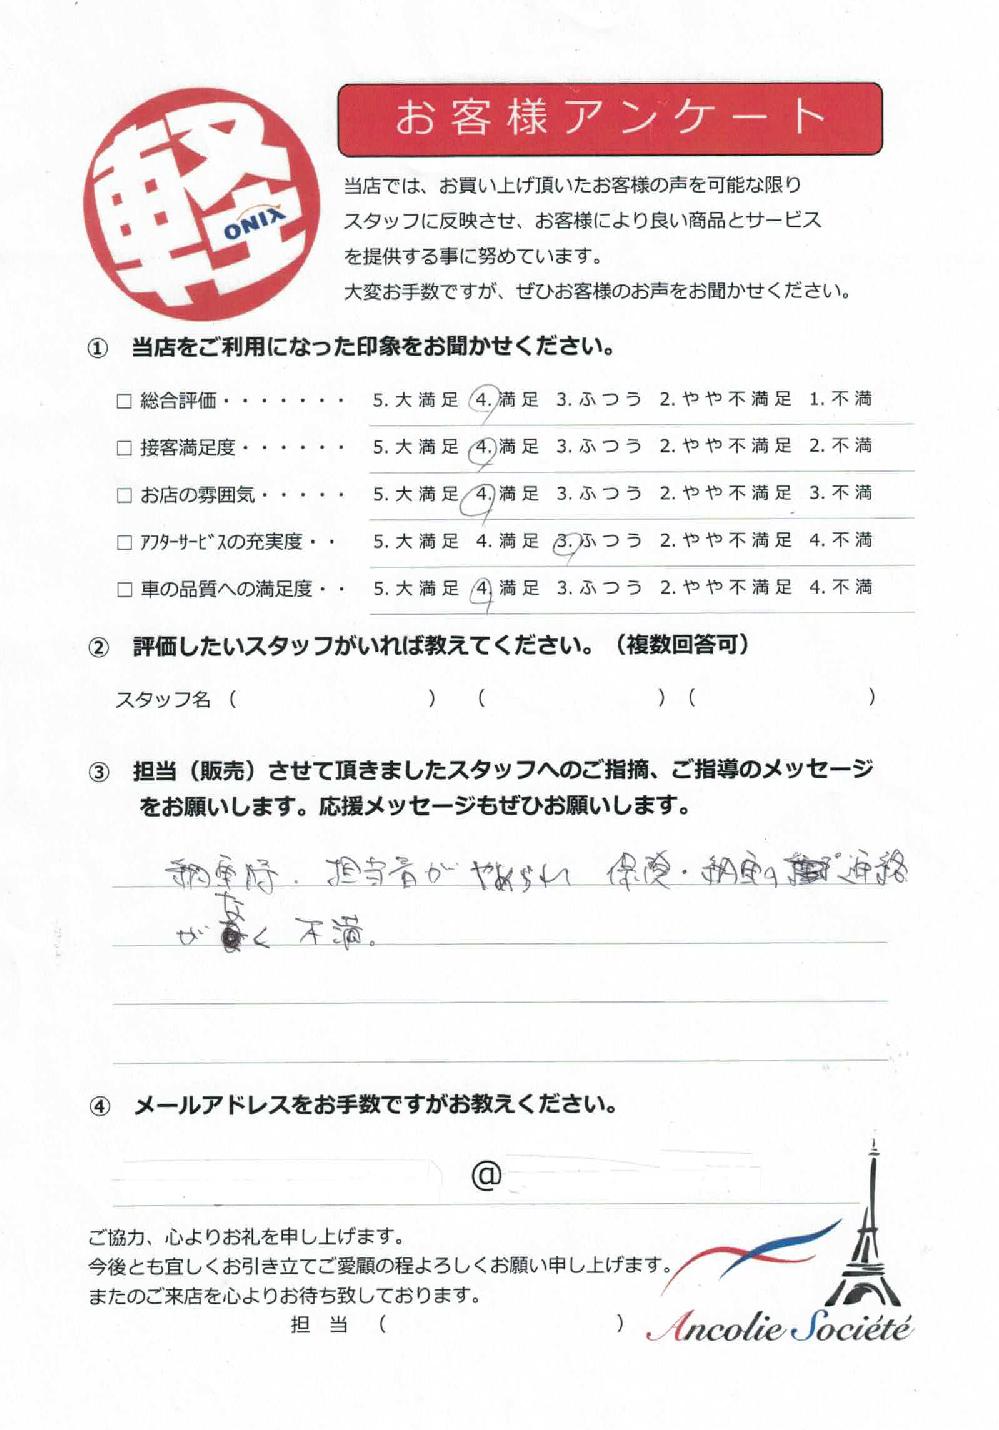 お客様アンケート
軽
ONIX
当店では、お買い上げ頂いたお客様の声を可能な限り
スタッフに反映させ、お客様により良い商品とサービス
を提供する事に努めています。
大変お手数ですが、ぜひお客様のお声をお聞かせください。
① 当店をご利用になった印象をお聞かせください。
□ 総合評価・・・・・・・ 5.大満足 4.満足 3.ふつう 2.やや不満足 1.不満
□ 接客満足度・・・・・・ 5.大満足 4.満足 3.ふつう 2.やや不満足 2.不満
□ お店の雰囲気・・・・・ 5.大満足 4.満足 3.ふつう 2.やや不満足 3.不満
□ ｱﾌﾀｰｻｰﾋﾞｽの充実度・・ 5.大満足 4.満足 3.ふつう 2.やや不満足 4.不満
□ 車の品質への満足度・・ 5.大満足 4.満足 3.ふつう 2.やや不満足 4.不満
② 評価したいスタッフがいれば教えてください。（複数回答可）
スタッフ名（ ）（ ）（ ）
③ 担当（販売）させて頂きましたスタッフへのご指摘、ご指導のメッセージ
をお願いします。応援メッセージもぜひお願いします。
納車時、担当者がやめられ 保険・納車の連絡
がなく 不満。
④ メールアドレスをお手数ですがお教えください。
@
ご協力、心よりお礼を申し上げます。
今後とも宜しくお引き立てご愛顧の程よろしくお願い申し上げます。
またのご来店を心よりお待ち致しております。
担 当 （ ）
Ancolie Société